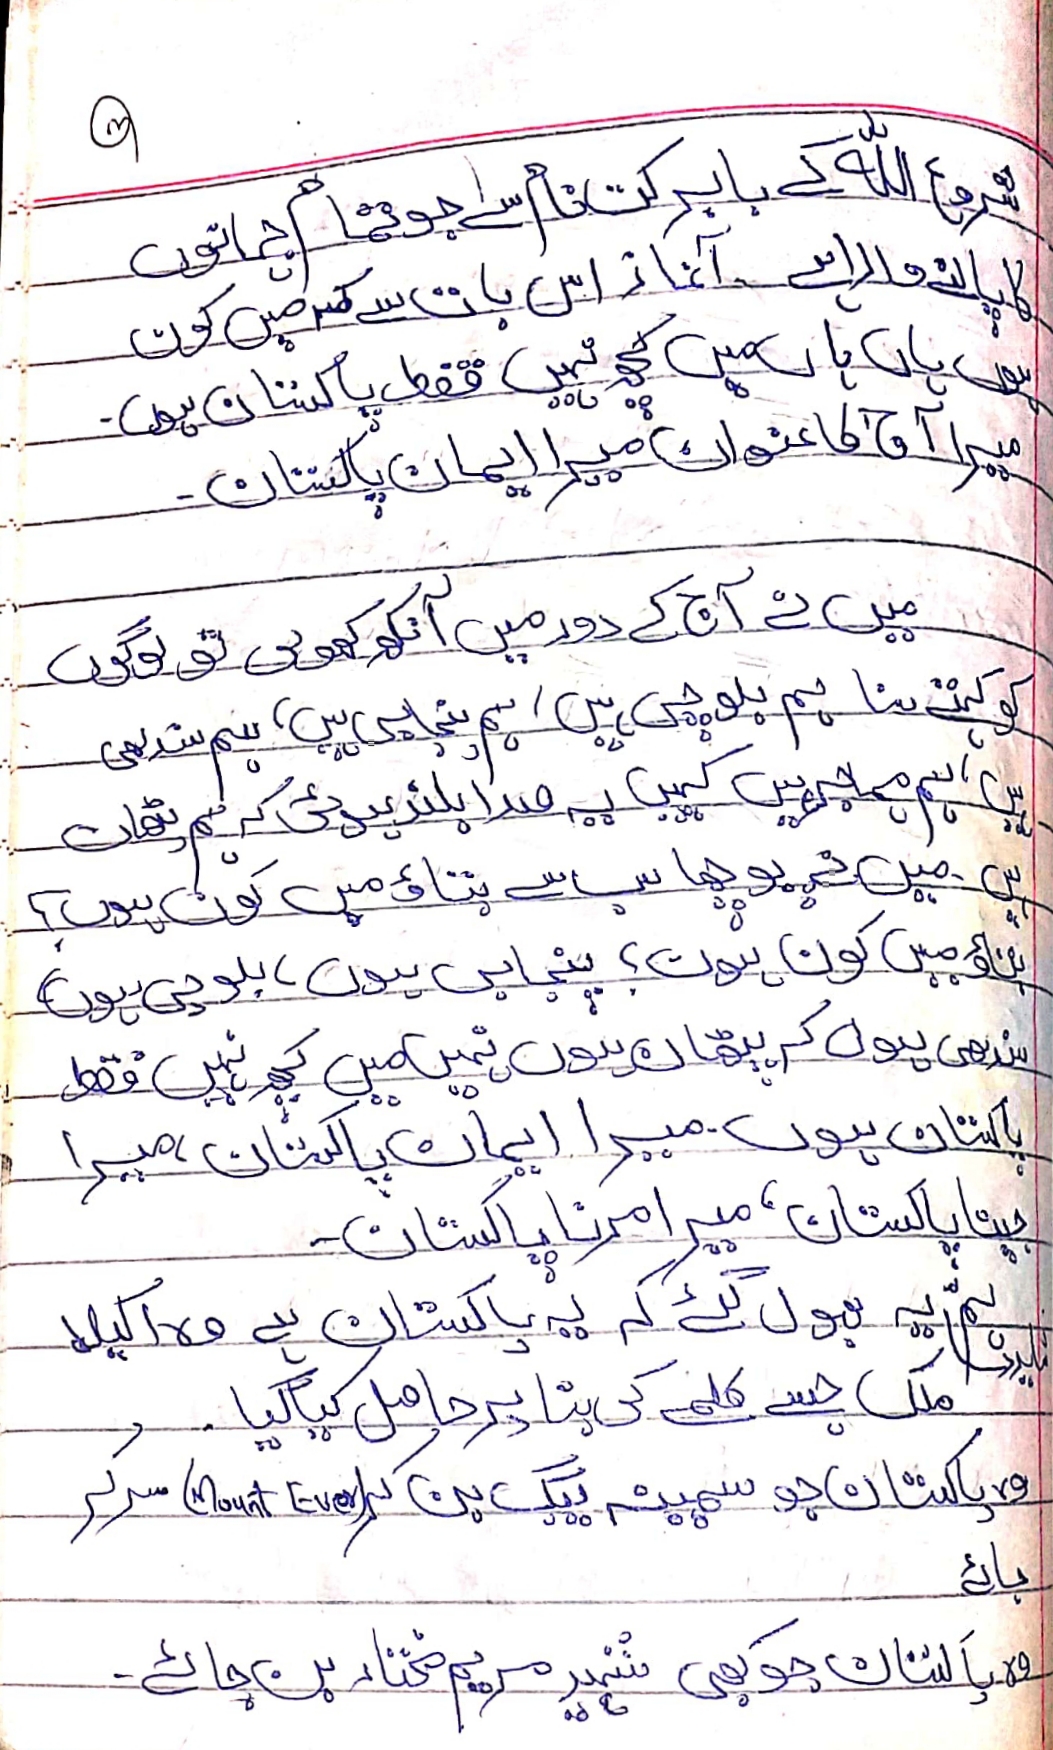 ۳
شروع اللہ کے بابرکت نام سے جو تمام جہانوں
کا پالنے والا ہے۔ آغاز اس بات سے کہ میں کون
ہوں ہاں ہاں میں کچھ نہیں فقط پاکستان ہوں۔
میرا آج کا عنوان میرا ایمان پاکستان۔
میں نے آج کے دور میں آنکھ کھولی تو لوگوں
کو کہتے سنا ہم بلوچی ہیں، ہم پنجابی ہیں، ہم سندھی
ہیں، ہم مہاجر ہیں کہیں یہ صدا بلند ہوئی کہ ہم پٹھان
ہیں۔ میں نے پوچھا سب سے بتاؤ میں کون ہوں؟
بتاؤ میں کون ہوں؟ پنجابی ہوں، بلوچی ہوں،
سندھی ہوں کہ پٹھان ہوں نہیں میں کچھ نہیں فقط
پاکستان ہوں۔ میرا ایمان پاکستان، میرا
جینا پاکستان، میرا مرنا پاکستان۔
ہم یہ بھول گئے کہ یہ پاکستان ہے وہ اکیلا
ملک جسے کلمے کی بنا پر حاصل کیا گیا۔
وہ پاکستان جو سمینہ بیگ بن کر (Mount Ever) سر کر
جائے
وہ پاکستان جو کبھی شہید مریم مختار بن جائے۔